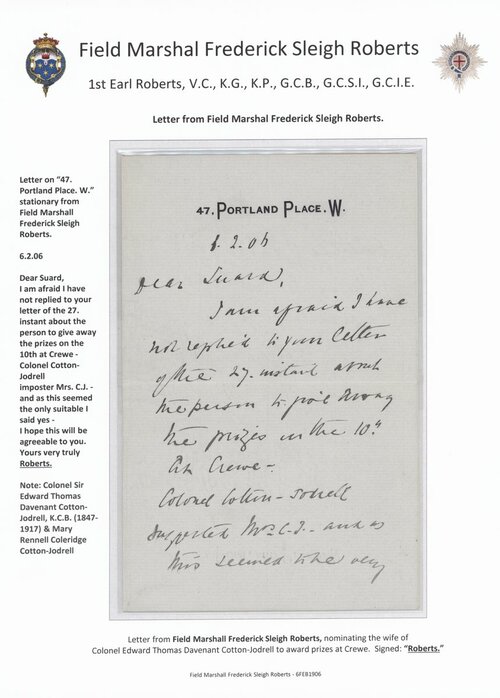 Field Marshal Frederick Sleigh Roberts
1st Earl Roberts, V.C., K.G., K.P., G.C.B., G.C.S.I., G.C.I.E.
Letter from Field Marshal Frederick Sleigh Roberts.
Letter on "47.
Portland Place. W."
stationary from
Field Marshall
Frederick Sleigh
Roberts.
6.2.06
Dear Suard,
I am afraid I have
not replied to your
letter of the 27.
instant about the
person to give away
the prizes on the
10th at Crewe -
Colonel Cotton-
Jodrell
imposter Mrs. C.J. -
and as this seemed
the only suitable I
said yes -
I hope this will be
agreeable to you.
Yours very truly
Roberts.
Note: Colonel Sir
Edward Thomas
Davenant Cotton-
Jodrell, K.C.B. (1847-
1917) & Mary
Rennell Coleridge
Cotton-Jodrell
47, PORTLAND PLACE. W.
6.2.06
Dear Suard,
I am afraid I have
not replied to your letter
of the 27. instant about
the person to give away
the prizes on the 10th
at Crewe -
Colonel Cotton-Jodrell
suggested Mrs. C.J. - and as
this seemed to be very
Letter from Field Marshall Frederick Sleigh Roberts, nominating the wife of
Colonel Edward Thomas Davenant Cotton-Jodrell to award prizes at Crewe. Signed: "Roberts."
Field Marshall Frederick Sleigh Roberts - 6FEB1906